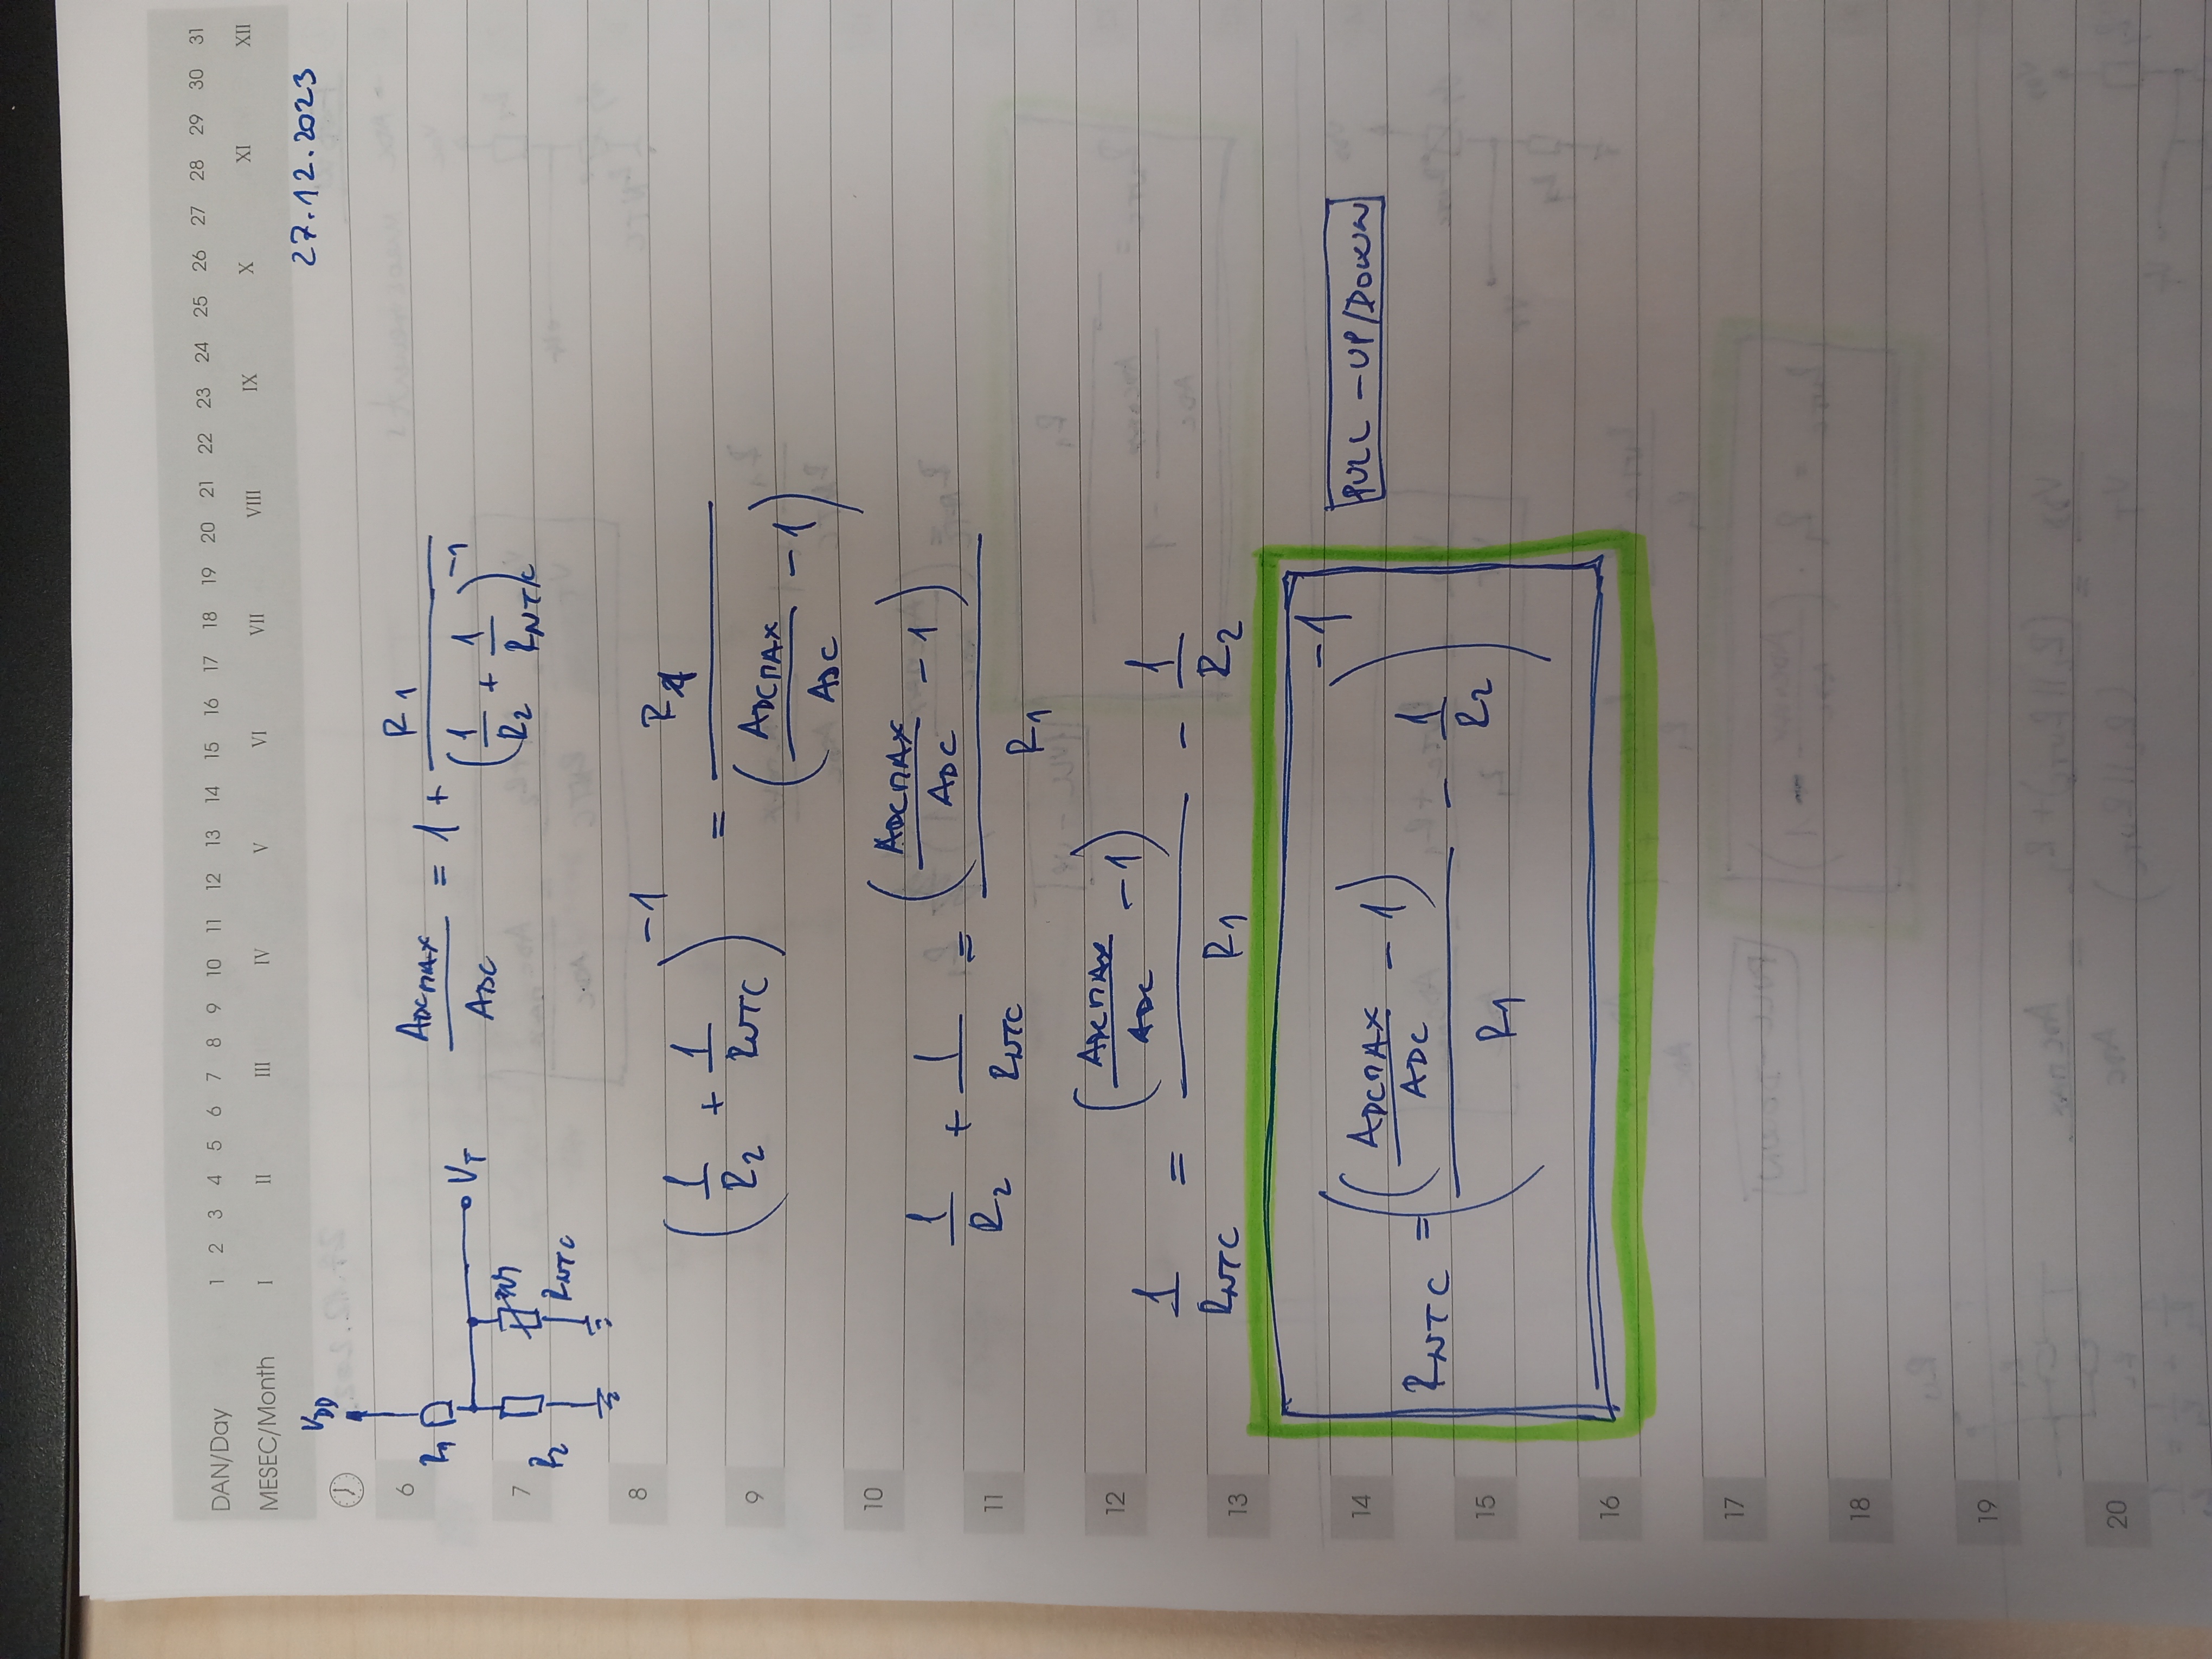 DAN/Day 1 2 3 4 5 6 7 8 9 10 11 12 13 14 15 16 17 18 19 20 21 22 23 24 25 26 27 28 29 30 31
MESEC/Month I II III IV V VI VII VIII IX X XI XII
27.12.2023
VDD
R1
VT
R2
RNTC
ADCMAX / ADC = 1 + R1 / (1/R2 + 1/RNTC)^-1
(1/R2 + 1/RNTC)^-1 = R1 / (ADCMAX/ADC - 1)
1/R2 + 1/RNTC = (ADCMAX/ADC - 1) / R1
1/RNTC = (ADCMAX/ADC - 1) / R1 - 1/R2
RNTC = ((ADCMAX/ADC - 1) / R1 - 1/R2)^-1
PULL-UP/DOWN
6
7
8
9
10
11
12
13
14
15
16
17
18
19
20